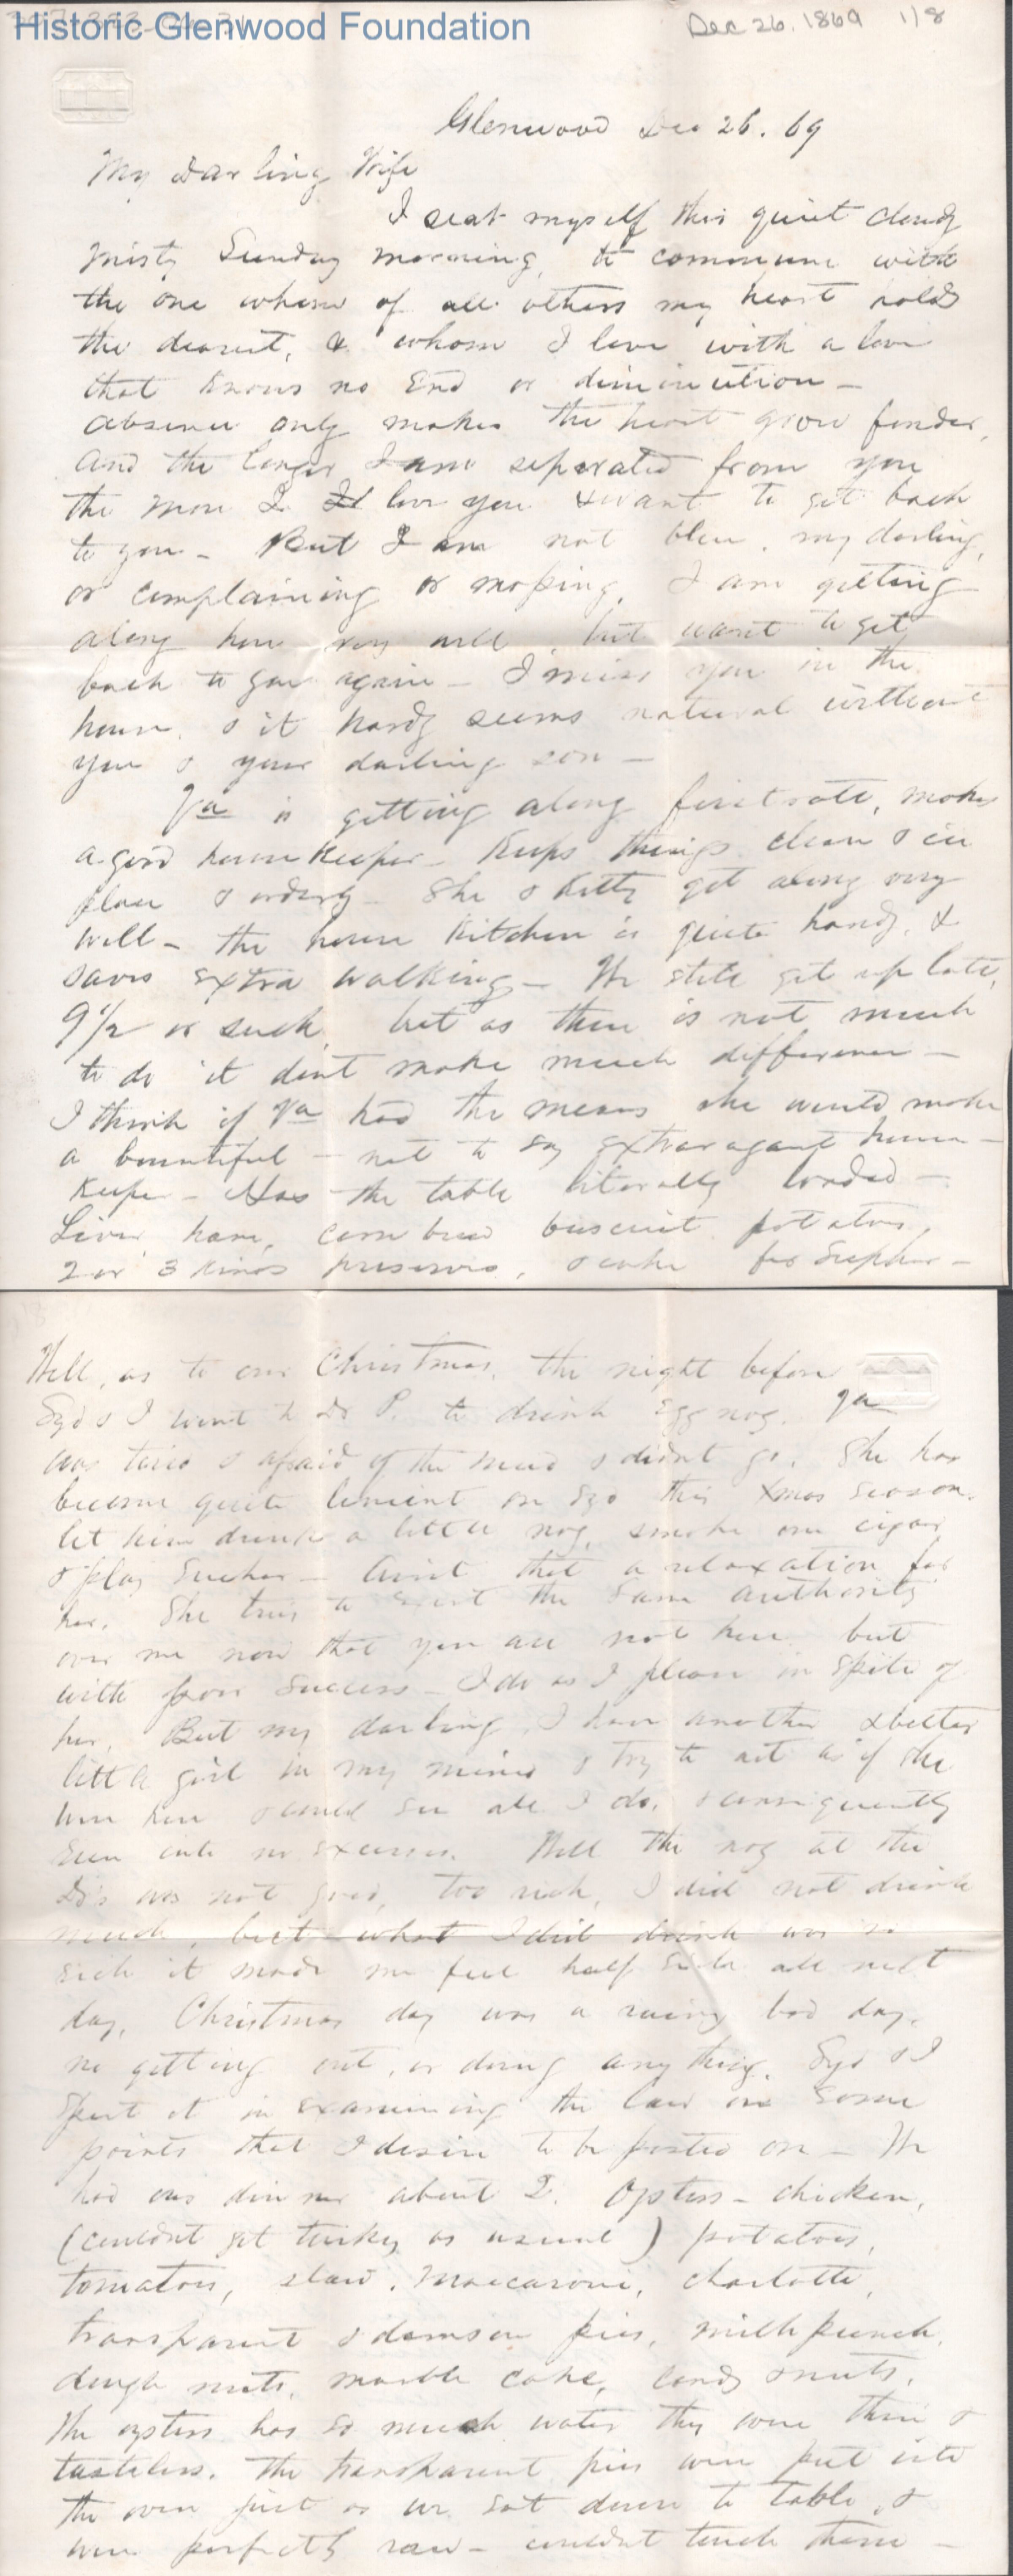 Historic Glenwood Foundation
Dec 26. 1869 1/8
Glenwood Dec 26. 69
My Darling Wife
I seat myself this quiet cloudy
misty Sunday morning, to commune with
the one whom of all others my heart holds
the dearest, & whom I love with a love
that knows no End or diminution -
absence only makes the heart grow fonder,
and the longer I am separated from you
the more I love you & want to get back
to you - But I am not blue, my darling,
or complaining or moping, I am getting
along here very well, but want to get
back to you again - I miss you in the
house, & it hardly seems natural without
you & your darling son -
Va is getting along first rate, makes
a good house keeper - Keeps things clean & in
place & orderly - She & Kitty get along very
well - the house Kitchen is quite handy, &
saves extra walking - We still get up late,
9 1/2 or such, but as there is not much
to do it dont make much difference -
I think if Va had the means she would make
a bountiful - not to say extravagant house -
keeper - Has the table literally loaded -
Liver, ham, corn bread buiscuit potatoes,
2 or 3 kinds preserves, & cake for Supper -
Well, as to our Christmas, the night before
Syd & I went to Dr P. to drink Egg nog. Va
was tired & afraid of the mud & didnt go. She has
become quite lenient on Syd this Xmas season.
let him drink a little nog, smoke one cigar,
& play Euchar - Aint that a relaxation for
her. She tries to exert the same authority
over me now that you are not here but
with poor success - I do as I please in spite of
her. But my darling, I have another & better
little girl in my mind & try to act as if she
were here & could see all I do, & consequently
run into no excesses. Well the nog at the
Drs was not good, too rich, I did not drink
much, but what I did drink was so
rich it made me feel half sick all next
day, Christmas day was a rainy bad day,
no getting out, or doing anything. Syd & I
spent it in examining the law on some
points that I desire to be posted on - We
had our dinner about 2. Oysters - chicken,
(couldnt get turkey as usual) potatoes,
tomatoes, slaw, Maccaroni, charlotte,
transparent & damson pies, milk punch,
dough nuts, marble cake, candy & nuts.
The oysters had so much water they were thin &
tasteless. The transparent pies were put into
the oven just as we sat down to table, &
were perfectly raw - couldnt touch them -